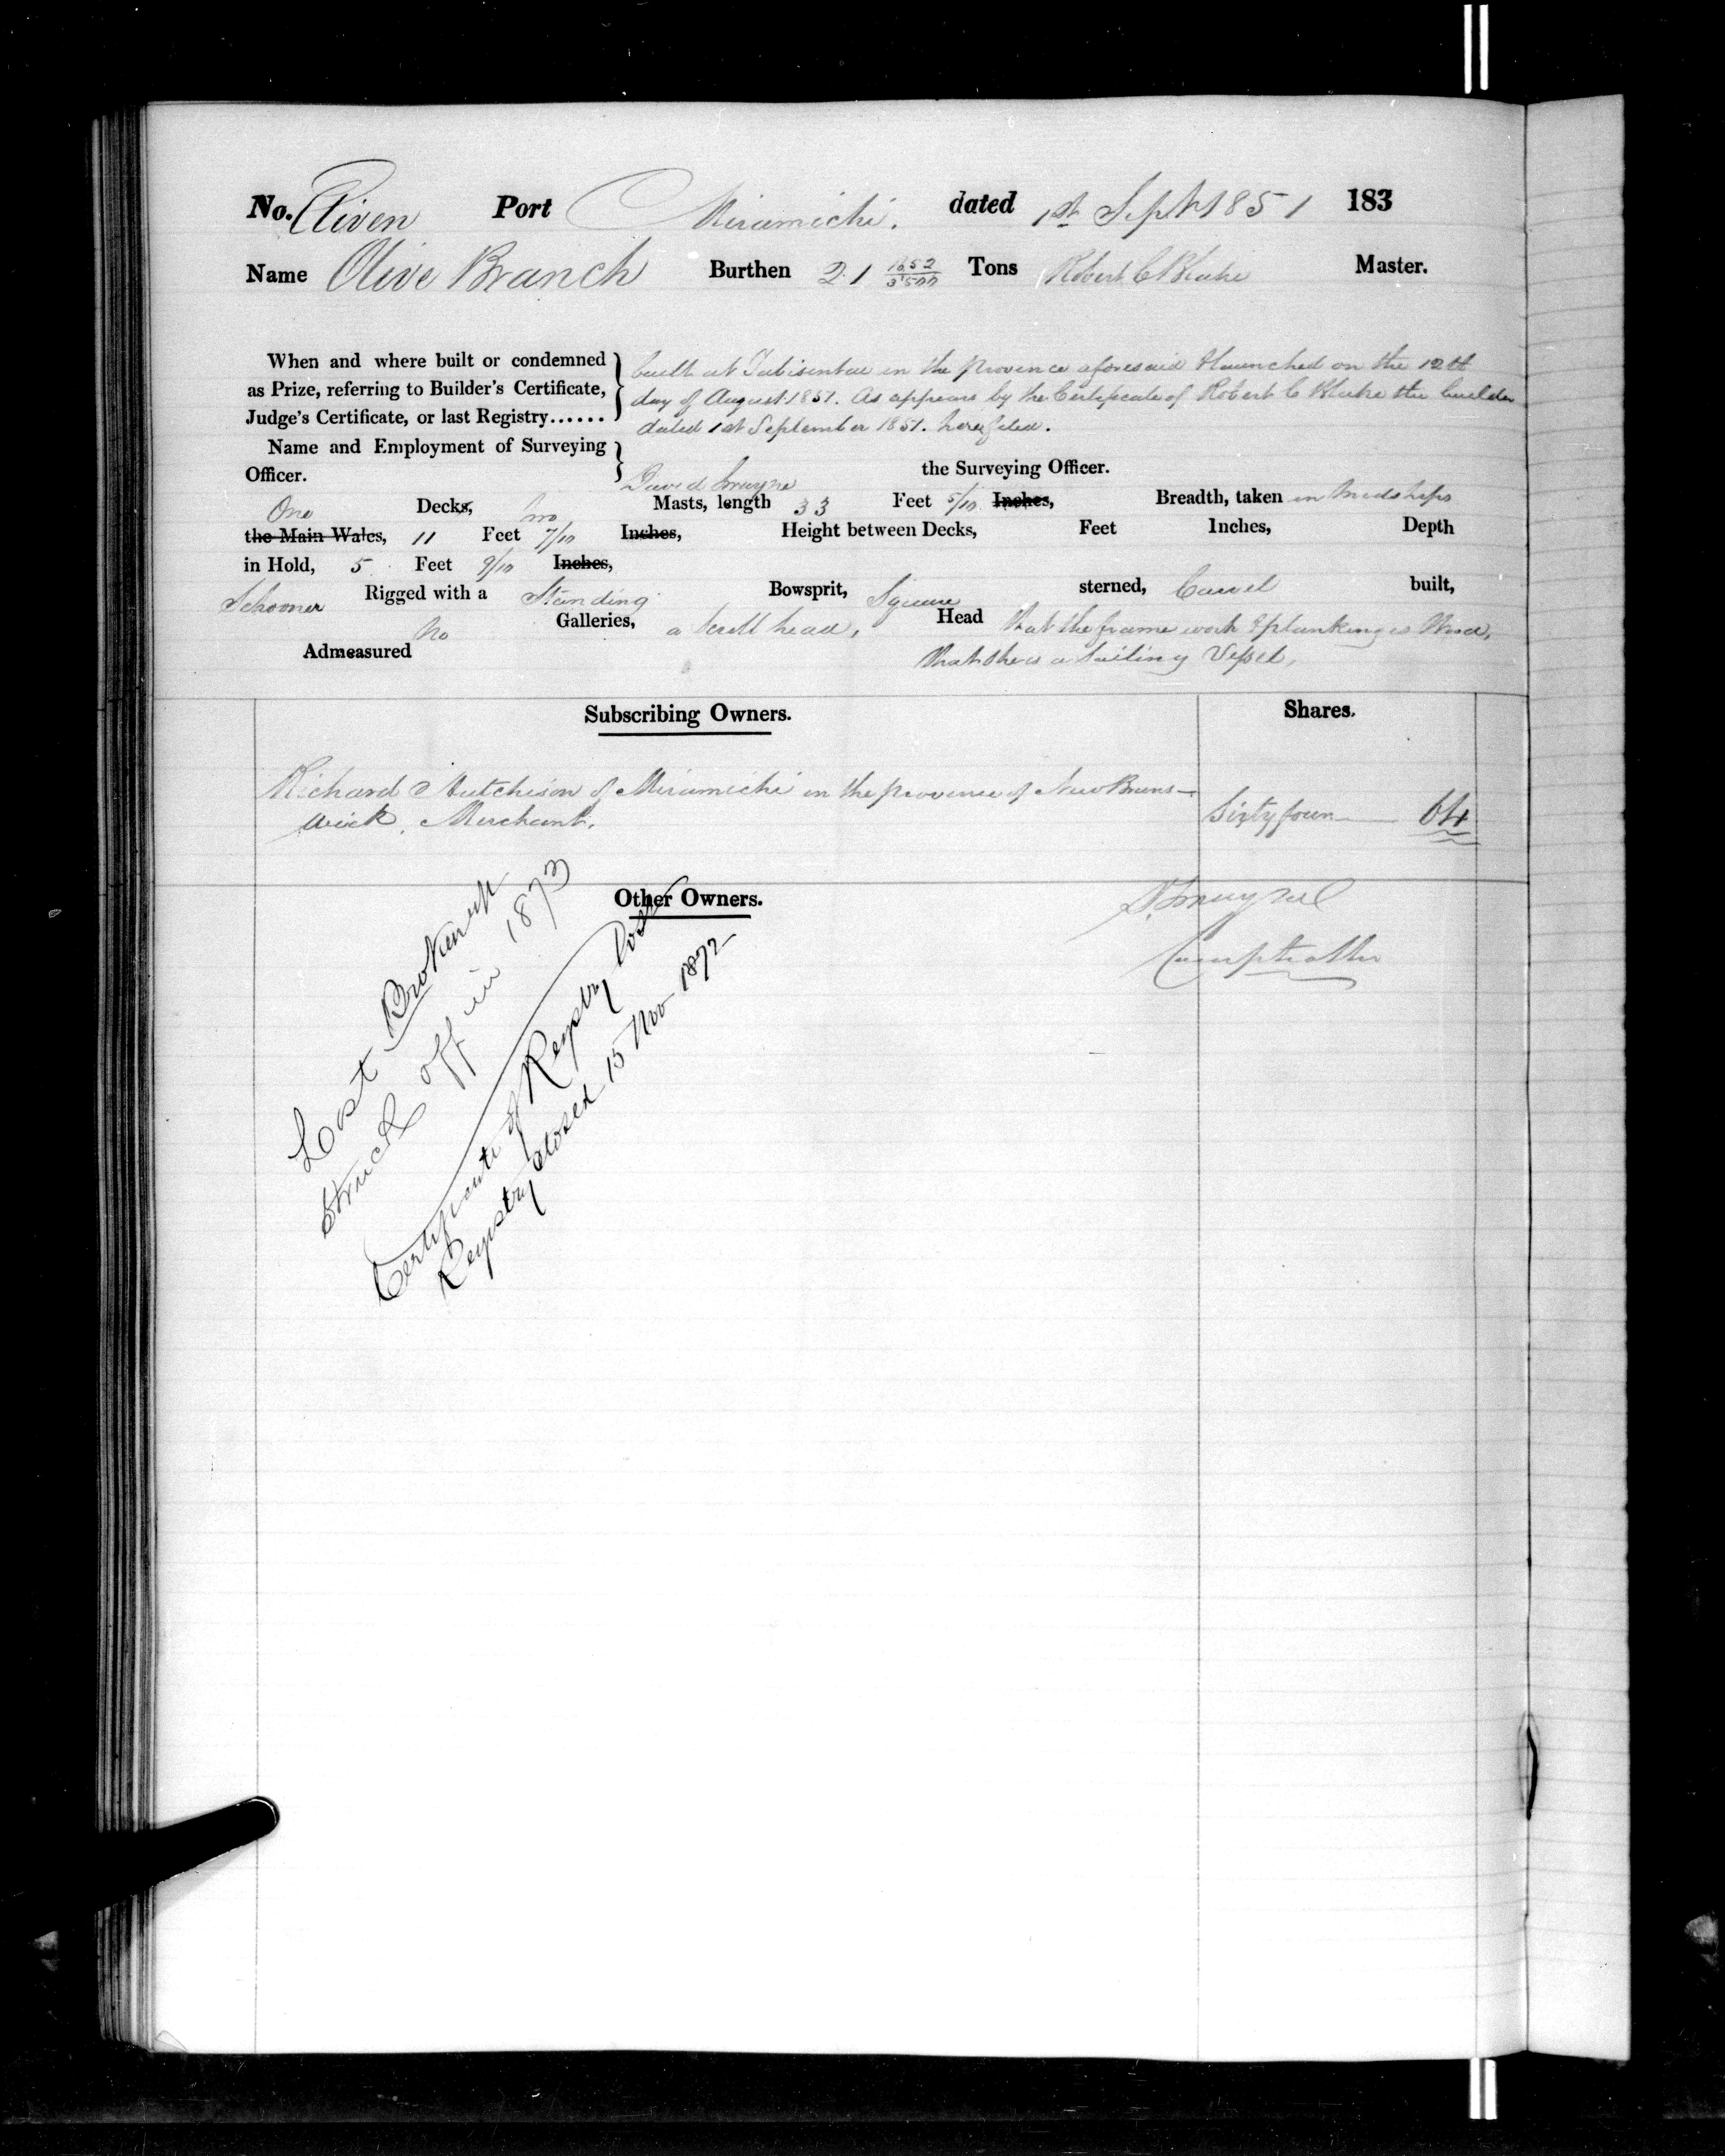 No. Eleven Port Miramichi. dated 1st Sept 1851 183
Name Olive Branch Burthen 21 1652/3500 Tons Robert C Blake Master.
When and where built or condemned as Prize, referring to Builder's Certificate, Judge's Certificate, or last Registry......
built at Tabisintac in the province aforesaid & launched on the 12th
day of August 1851. As appears by the Certificate of Robert C Blake the builder
dated 1st September 1851. here filed.
Name and Employment of Surveying
Officer. David the Surveying Officer.
One Decks, two Masts, length 33 Feet 5/10 Inches, Breadth, taken in Midships
the Main Wales, 11 Feet 7/10 Inches, Height between Decks, Feet Inches, Depth
in Hold, 5 Feet 9/10 Inches,
Schooner Rigged with a Standing Bowsprit, Square sterned, Carvel built,
No Galleries, a Scroll head, Head that the frame work & planking is Wood,
Admeasured that she is a Sailing Vessel,
Subscribing Owners. Shares.
Richard Hutchison of Miramichi in the province of New Bruns-
wick, Merchant. Sixty four 64
Other Owners.
Comptroller
Lost Broken up
Struck off in 1873
Certificate of Registry Lost
Registry closed 15 Nov 1872